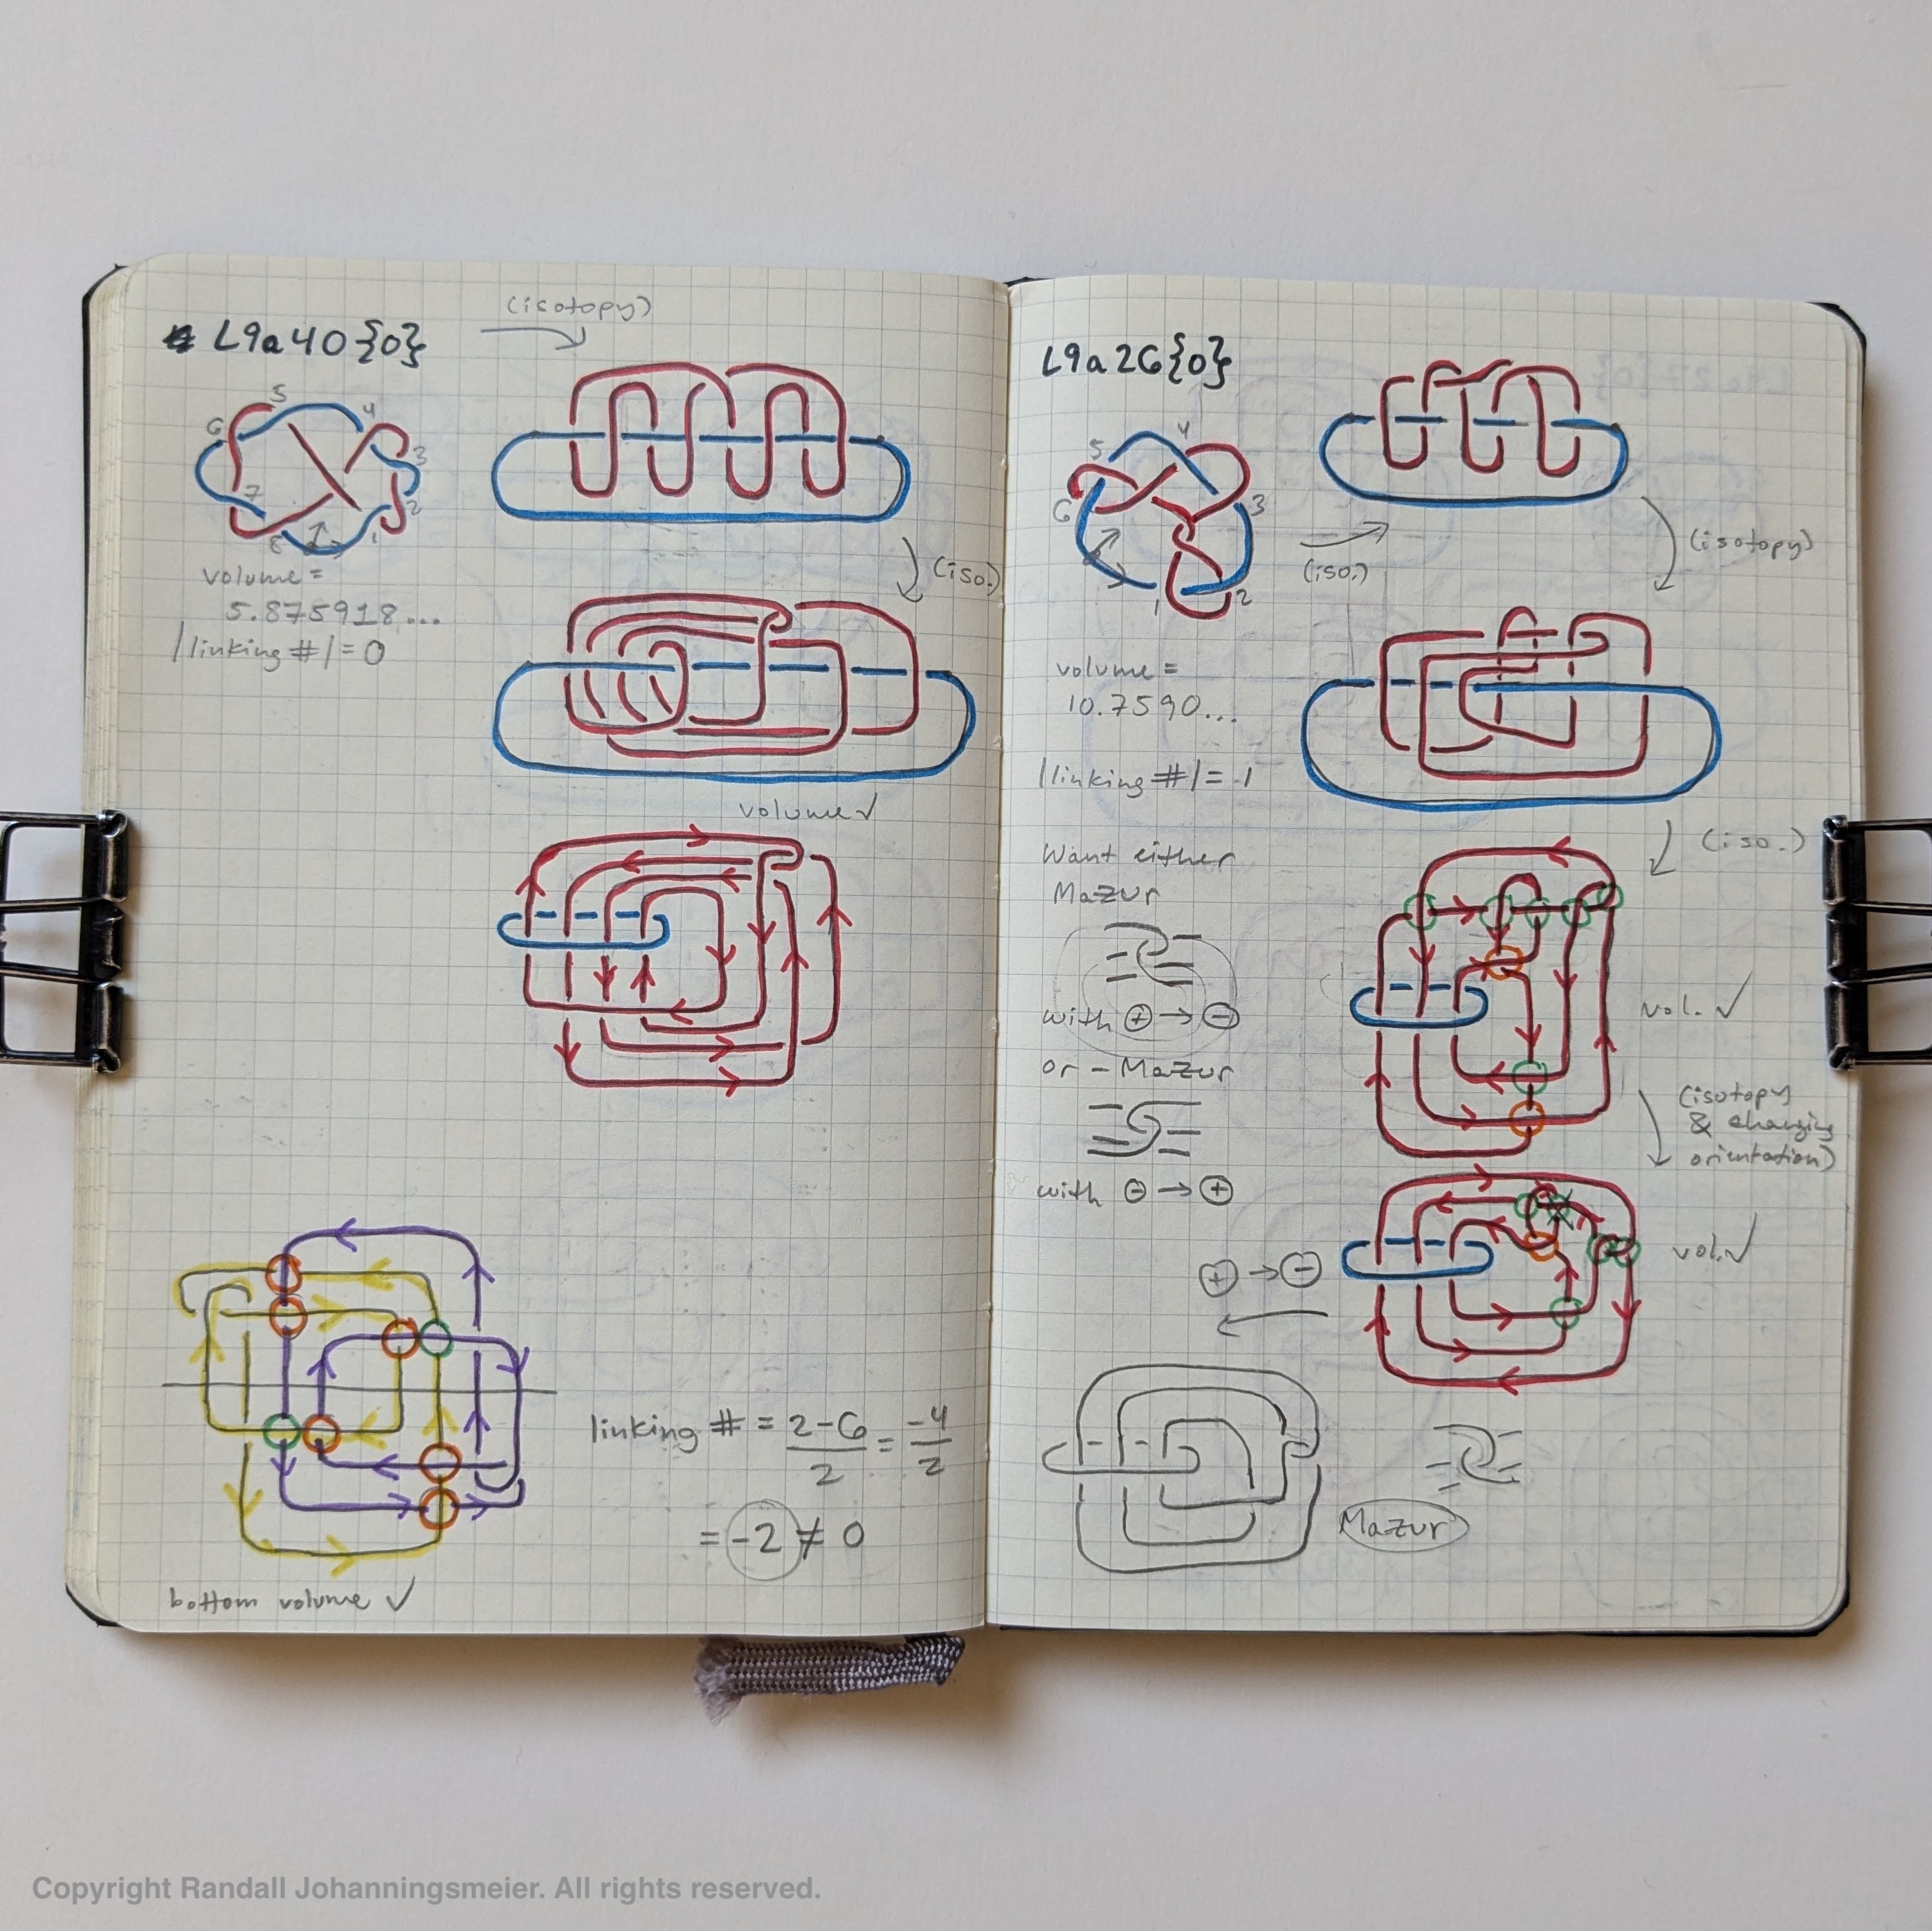 L9a40{0}
(isotopy)
5
4
6
3
7
2
8
1
volume =
5.875918...
|linking #| = 0
(iso.)
volume ✓
linking # = 2-6/2 = -4/2
= -2 ≠ 0
bottom volume ✓
L9a26{0}
4
5
6
3
1
2
(iso.)
(isotopy)
volume =
10.7590...
|linking #| = 1
(iso.)
Want either
Mazur
with ⊕ → ⊖
or - Mazur
with ⊖ → ⊕
vol. ✓
(isotopy
& changing
orientation)
vol. ✓
⊕ → ⊖
Mazur
Copyright Randall Johanningsmeier. All rights reserved.